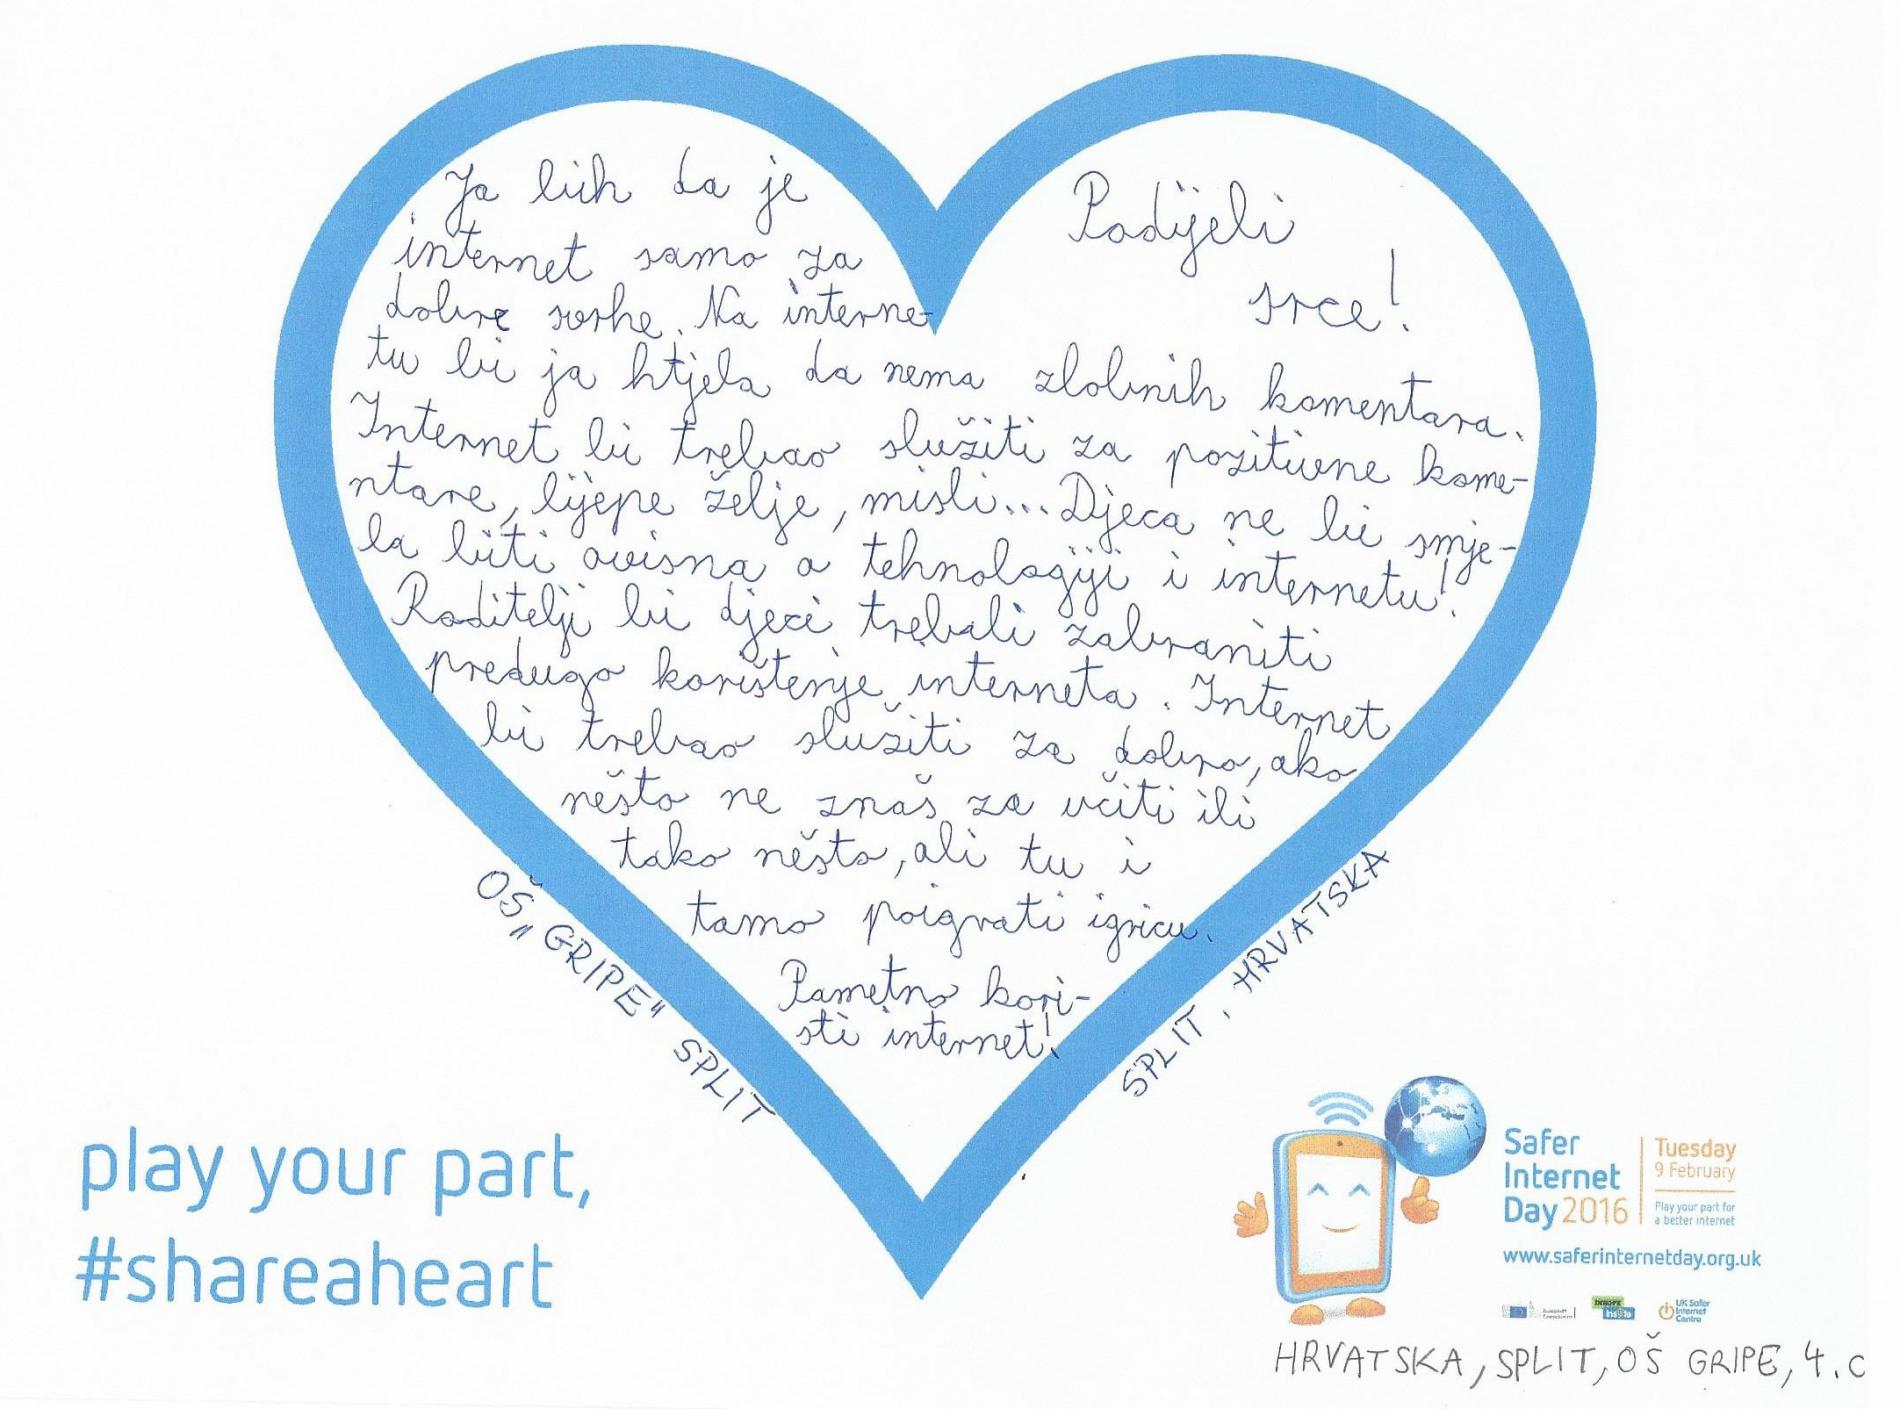 Ja bih da je
internet samo za
dobre svrhe. Na interne-
tu bi ja htjela da nema zlobnih komentara.
Podijeli
srce!
Internet bi trebao služiti za pozitivne kome-
ntare, lijepe želje, misli... Djeca ne bi smje-
la biti ovisna o tehnologiji i internetu!
Roditelji bi djeci trebali zabraniti
predugo korištenje interneta. Internet
bi trebao služiti za dobro, ako
nešto ne znaš za učiti ili
tako nešto, ali tu i
tamo poigrati igricu.
Pametno kori-
sti internet!
OŠ „GRIPE" SPLIT
SPLIT, HRVATSKA
play your part,
#shareaheart
Safer
Internet
Day 2016
Tuesday
9 February
Play your part for
a better internet
www.saferinternetday.org.uk
UK Safer
Internet
Centre
HRVATSKA, SPLIT, OŠ GRIPE, 4. c